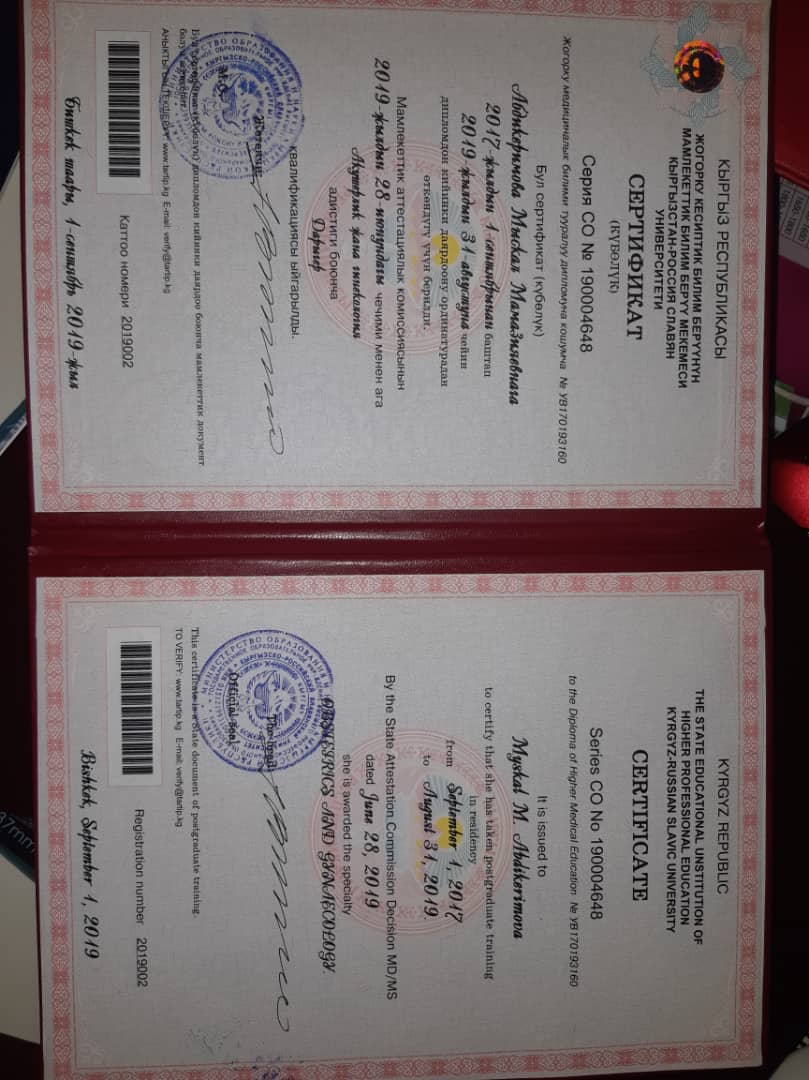 КЫРГЫЗ РЕСПУБЛИКАСЫ
ЖОГОРКУ КЕСИПТИК БИЛИМ БЕРҮҮНҮН
МАМЛЕКЕТТИК БИЛИМ БЕРҮҮ МЕКЕМЕСИ
КЫРГЫЗСТАН-РОССИЯ СЛАВЯН
УНИВЕРСИТЕТИ
СЕРТИФИКАТ
(КҮБӨЛҮК)
Серия СО № 190004648
Жогорку медициналык билими туралуу дипломуна кошумча № УВ170193160
Бул сертификат (күбөлүк)
Абдикеримова Мыскал Мамазияевнага
2017-жылдын 1-сентябрынан баштап
2019-жылдын 31-августуна чейин
дипломдон кийинки даярдоону ординатурадан
өткөндүгү үчүн берилди.
Мамлекеттик аттестациялык комиссиясынын
2019-жылдын 28-июнундагы чечими менен ага
Акушерлик жана гинекология
адистиги боюнча
Дарыгер
квалификациясы ыйгарылды.
Жетекчи
М.О.
дипломдон кийинки даярдоо боюнча мамлекеттик документ
www.tartip.kg E-mail: verify@tartip.kg
Каттоо номери 2019002
Бишкек шаары, 1-сентябрь 2019-жыл
KYRGYZ REPUBLIC
THE STATE EDUCATIONAL UNSTITUTION OF
HIGHER PROFESSIONAL EDUCATION
KYRGYZ-RUSSIAN SLAVIC UNIVERSITY
CERTIFICATE
Series CO No 190004648
to the Diploma of Higher Medical Education № УВ170193160
It is issued to
Myskal M. Abdikerimova
to certify that she has taken postgraduate training
in residency
from September 1, 2017
to August 31, 2019.
By the State Attestation Commission Decision MD/MS
dated June 28, 2019
she is awarded the specialty
OBSTETRICS AND GYNAECOLOGY.
The head
Official Seal
This certificate is a State document of postgraduate training.
TO VERIFY: www.tartip.kg E-mail: verify@tartip.kg
Registration number 2019002
Bishkek, September 1, 2019